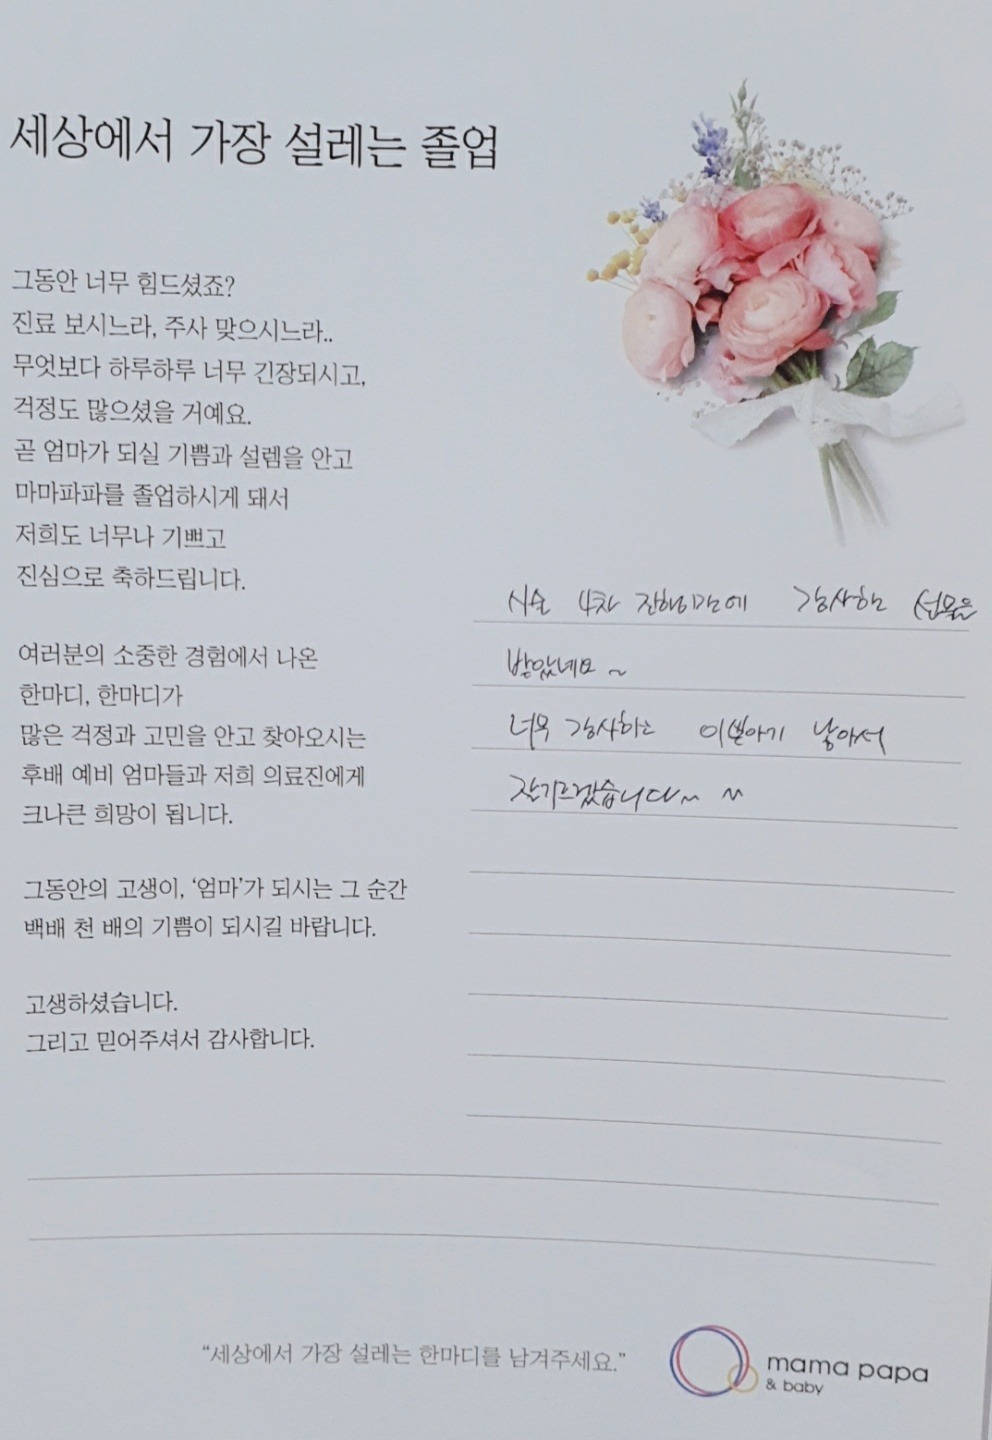 세상에서 가장 설레는 졸업
그동안 너무 힘드셨죠?
진료 보시느라, 주사 맞으시느라..
무엇보다 하루하루 너무 긴장되시고,
걱정도 많으셨을 거예요.
곧 엄마가 되실 기쁨과 설렘을 안고
마마파파를 졸업하시게 돼서
저희도 너무나 기쁘고
진심으로 축하드립니다.
여러분의 소중한 경험에서 나온
한마디, 한마디가
많은 걱정과 고민을 안고 찾아오시는
후배 예비 엄마들과 저희 의료진에게
크나큰 희망이 됩니다.
그동안의 고생이, ‘엄마’가 되시는 그 순간
백배 천 배의 기쁨이 되시길 바랍니다.
고생하셨습니다.
그리고 믿어주셔서 감사합니다.
시술 4차 진행만에 감사한 선물을
받았네요 ~
너무 감사하고 이쁜아기 낳아서
잘키르겠습니다~ ~
“세상에서 가장 설레는 한마디를 남겨주세요.”
mama papa
& baby